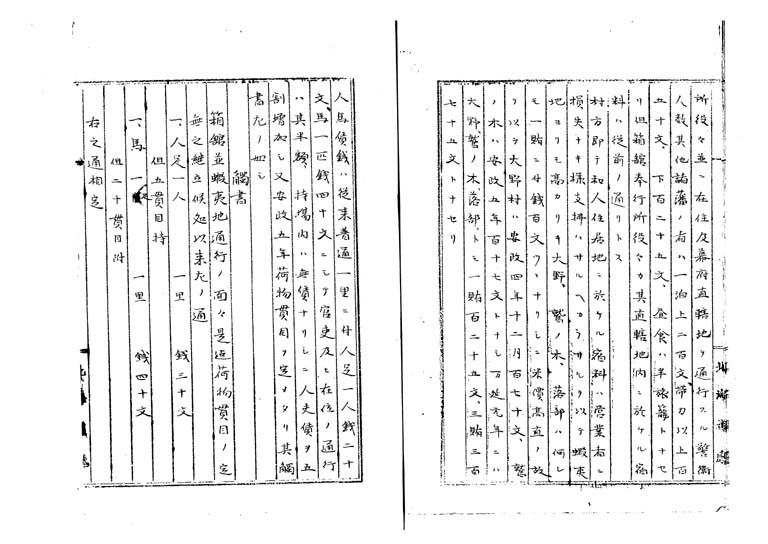 所役々並ニ在住及幕府直轄地ヲ通行スル警衛
人数其他諸藩ノ者ハ一泊上二百文帯刀以上百
五十文、下百二十五文、昼食ハ半旅籠トナセ
リ但箱館奉行所役々カ其直轄地内ニ於ケル宿
料ハ従前ノ通リトス
村方即チ和人住居地ニ於ケル宿料ハ営業者ニ
損失ナキ様支拂ハサルヘカラサルヲ以テ蝦夷
地ヨリモ高カリキ大野、鷲ノ木、落部ハ何レ
モ一賄ニ付銭百文ツヽナリシニ米價高直ノ故
ヲ以テ大野村ハ安政四年十二月百七十文、鷲
ノ木ハ安政五年百十七文トナシ万延元年ニハ
大野鷲ノ木、落部、トモ一賄百二十五文、三賄三百
七十五文トナセリ
人馬賃銭ハ従来普通一里ニ付人足一人銭二十
文、馬一匹銭四十文ニシテ官吏及ヒ在住ノ通行
ハ其半額、持場内ハ無賃ナリシニ人夫賃ヲ五
割増加シ又安政五年荷物貫目ヲ定メタリ其觸
書左ノ如シ
觸書
箱舘並蝦夷地通行ノ面々是迄荷物貫目ノ定
無之継立候処以来左ノ通
一、人足一人 一里 銭三十文
但五貫目持
一、馬一 一里 銭四十文
但二十貫目附
右之通相定